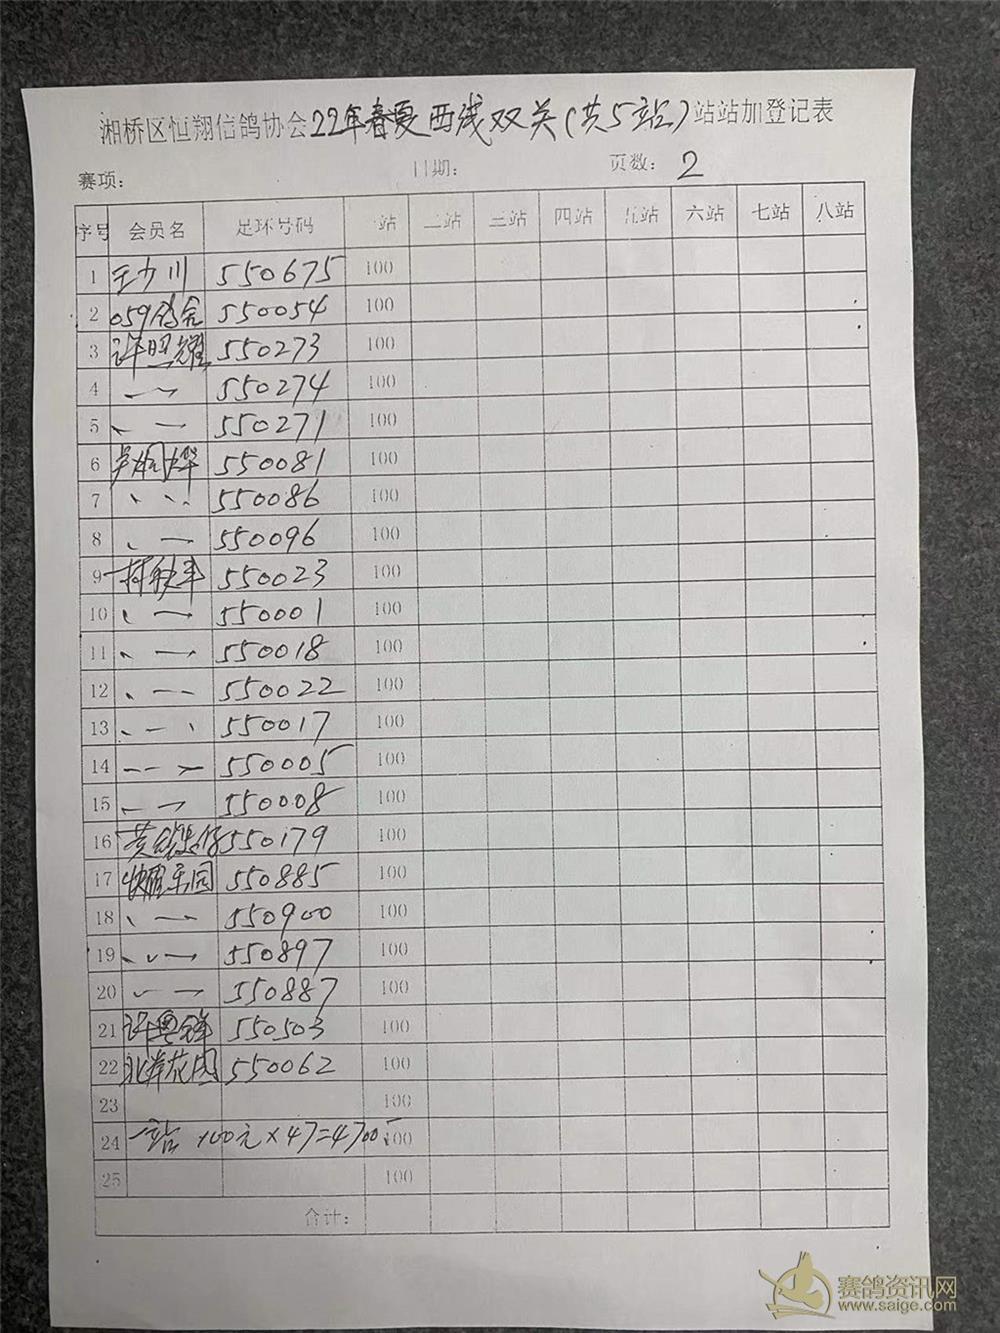 湘桥区恒翔信鸽协会22年春夏西线双关(共5站)站站加登记表
赛项: 日期: 页数: 2
序号 会员名 足环号码 一站 二站 三站 四站 五站 六站 七站 八站
1 王少川 550675 100
2 059鸽舍 550054 100
3 许照耀 550273 100
4 550274 100
5 550271 100
6 550081 100
7 550086 100
8 550096 100
9 550023 100
10 550001 100
11 550018 100
12 550022 100
13 550017 100
14 550005 100
15 550008 100
16 550179 100
17 乐园 550885 100
18 550900 100
19 550897 100
20 550887 100
21 许 锋 550503 100
22 北岸花园 550062 100
23 100
24 一站 100元×47=4700 100
25 100
合计:
赛鸽资讯网
www.saige.com